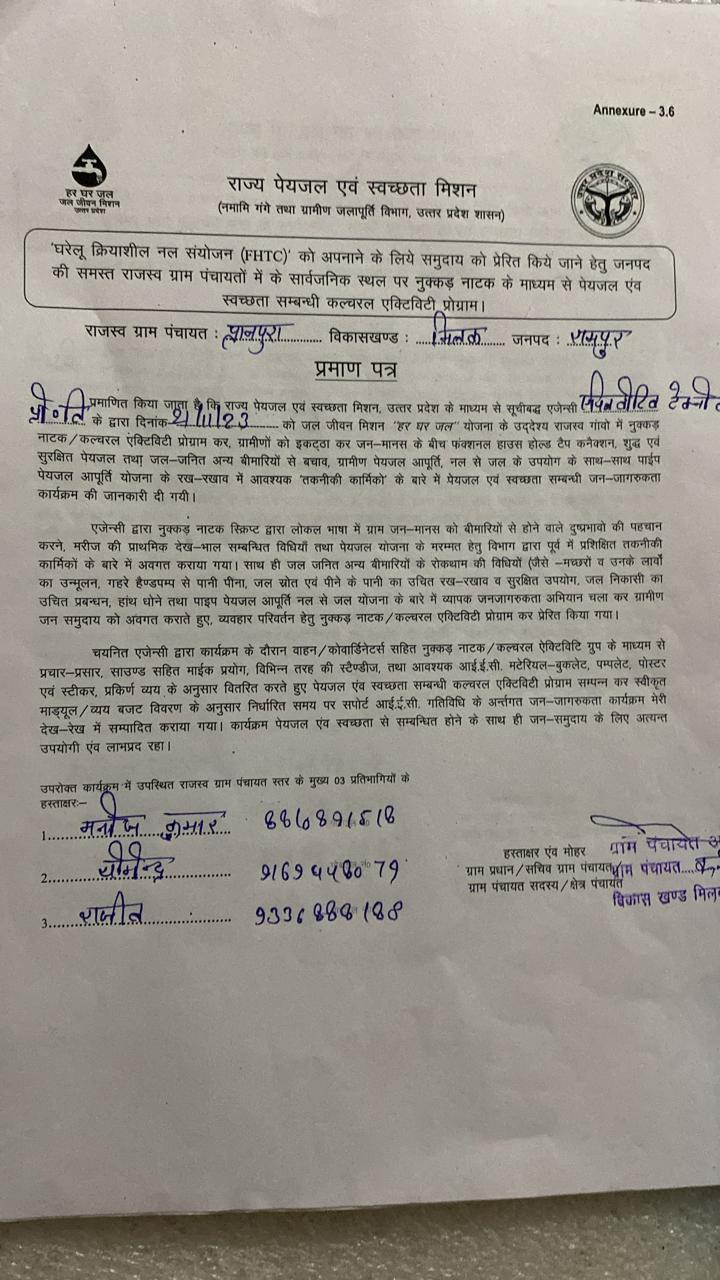 Annexure – 3.6
हर घर जल
जल जीवन मिशन
उत्तर प्रदेश
राज्य पेयजल एवं स्वच्छता मिशन
(नमामि गंगे तथा ग्रामीण जलापूर्ति विभाग, उत्तर प्रदेश शासन)
उत्तर प्रदेश सरकार
'घरेलू क्रियाशील नल संयोजन (FHTC)' को अपनाने के लिये समुदाय को प्रेरित किये जाने हेतु जनपद
की समस्त राजस्व ग्राम पंचायतों में के सार्वजनिक स्थल पर नुक्कड़ नाटक के माध्यम से पेयजल एंव
स्वच्छता सम्बन्धी कल्चरल एक्टिविटी प्रोग्राम।
राजस्व ग्राम पंचायत : ............ विकासखण्ड : मिलक जनपद : रामपुर
प्रमाण पत्र
प्रमाणित किया जाता है कि राज्य पेयजल एवं स्वच्छता मिशन, उत्तर प्रदेश के माध्यम से सूचीबद्ध एजेन्सी
प्रा०लि के द्वारा दिनांक 2/11/23 को जल जीवन मिशन "हर घर जल" योजना के उद्देश्य राजस्व गांवो में नुक्कड़
नाटक/कल्चरल एक्टिविटी प्रोग्राम कर, ग्रामीणों को इकट्ठा कर जन–मानस के बीच फंक्शनल हाउस होल्ड टैप कनैक्शन, शुद्ध एवं
सुरक्षित पेयजल तथा जल–जनित अन्य बीमारियों से बचाव, ग्रामीण पेयजल आपूर्ति, नल से जल के उपयोग के साथ–साथ पाईप
पेयजल आपूर्ति योजना के रख–रखाव में आवश्यक 'तकनीकी कार्मिको' के बारे में पेयजल एवं स्वच्छता सम्बन्धी जन–जागरुकता
कार्यक्रम की जानकारी दी गयी।
एजेन्सी द्वारा नुक्कड़ नाटक स्क्रिप्ट द्वारा लोकल भाषा में ग्राम जन–मानस को बीमारियों से होने वाले दुष्प्रभावो की पहचान
करने, मरीज की प्राथमिक देख–भाल सम्बन्धित विधियाँ तथा पेयजल योजना के मरम्मत हेतु विभाग द्वारा पूर्व में प्रशिक्षित तकनीकी
कार्मिकों के बारे में अवगत कराया गया। साथ ही जल जनित अन्य बीमारियों के रोकथाम की विधियों (जैसे –मच्छरों व उनके लार्वो
का उन्मूलन, गहरे हैण्डपम्प से पानी पीना, जल स्रोत एवं पीने के पानी का उचित रख–रखाव व सुरक्षित उपयोग, जल निकासी का
उचित प्रबन्धन, हांथ धोने तथा पाइप पेयजल आपूर्ति नल से जल योजना के बारे में व्यापक जनजागरुकता अभियान चला कर ग्रामीण
जन समुदाय को अवगत कराते हुए, व्यवहार परिवर्तन हेतु नुक्कड़ नाटक/कल्चरल एक्टिविटी प्रोग्राम कर प्रेरित किया गया।
चयनित एजेन्सी द्वारा कार्यक्रम के दौरान वाहन/कोवार्डिनेटर्स सहित नुक्कड़ नाटक/कल्चरल ऐक्टिविटि ग्रुप के माध्यम से
प्रचार–प्रसार, साउण्ड सहित माईक प्रयोग, विभिन्न तरह की स्टैण्डीज, तथा आवश्यक आई.ई.सी. मटेरियल–बुकलेट, पम्पलेट, पोस्टर
एवं स्टीकर, प्रकिर्ण व्यय के अनुसार वितरित करते हुए पेयजल एंव स्वच्छता सम्बन्धी कल्चरल एक्टिविटी प्रोग्राम सम्पन्न कर स्वीकृत
माड्यूल/व्यय बजट विवरण के अनुसार निर्धारित समय पर सपोर्ट आई.ई.सी. गतिविधि के अर्न्तगत जन–जागरुकता कार्यक्रम मेरी
देख–रेख में सम्पादित कराया गया। कार्यक्रम पेयजल एंव स्वच्छता से सम्बन्धित होने के साथ ही जन–समुदाय के लिए अत्यन्त
उपयोगी एंव लाभप्रद रहा।
उपरोक्त कार्यक्रम में उपस्थित राजस्व ग्राम पंचायत स्तर के मुख्य 03 प्रतिभागियों के
हस्ताक्षरः–
1. मनोज कुमार 8810891518
2. योगेन्द्र
3. राजीव 9336888188
हस्ताक्षर एंव मोहर
ग्राम प्रधान/सचिव ग्राम पंचायत/
ग्राम पंचायत सदस्य/क्षेत्र पंचायत
ग्राम पंचायत
ग्राम पंचायत
विकास खण्ड